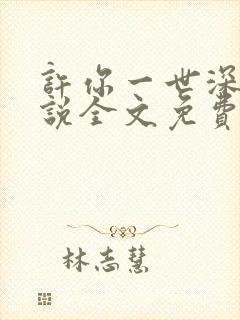 許你一世深
說全文免費
林志慧